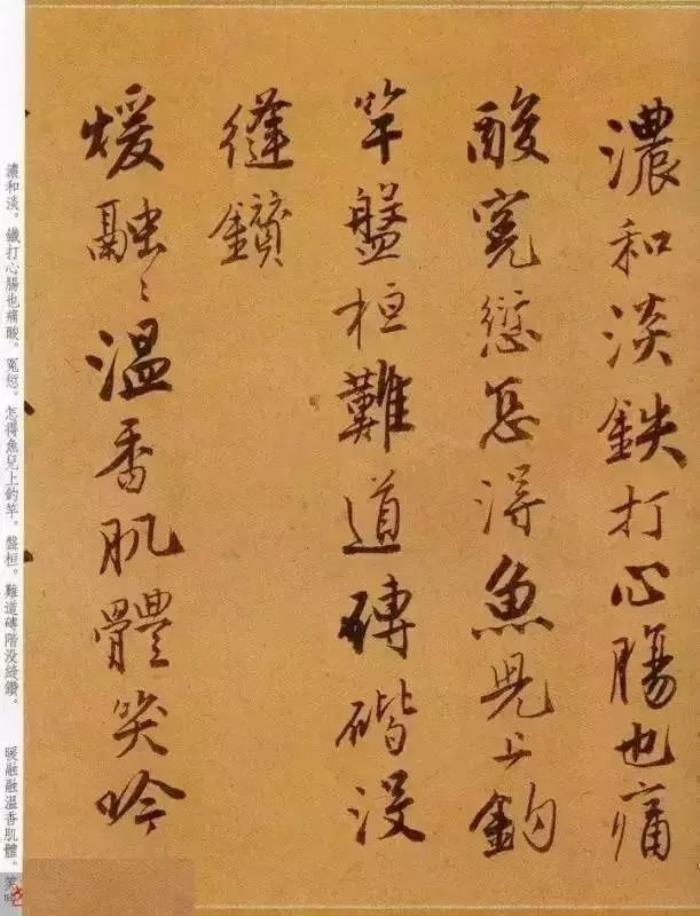 濃和淡鉄打心腸也痛
酸寃愆怎得魚児上鈎
竿盤桓難道磚堦没
縫鑽
煖融〻温香肌體笑吟
濃和淡。鐵打心腸也痛酸。冤愆。怎得魚兒上釣竿。盤桓。難道磚階没縫鑽。
暖融融温香肌體。笑